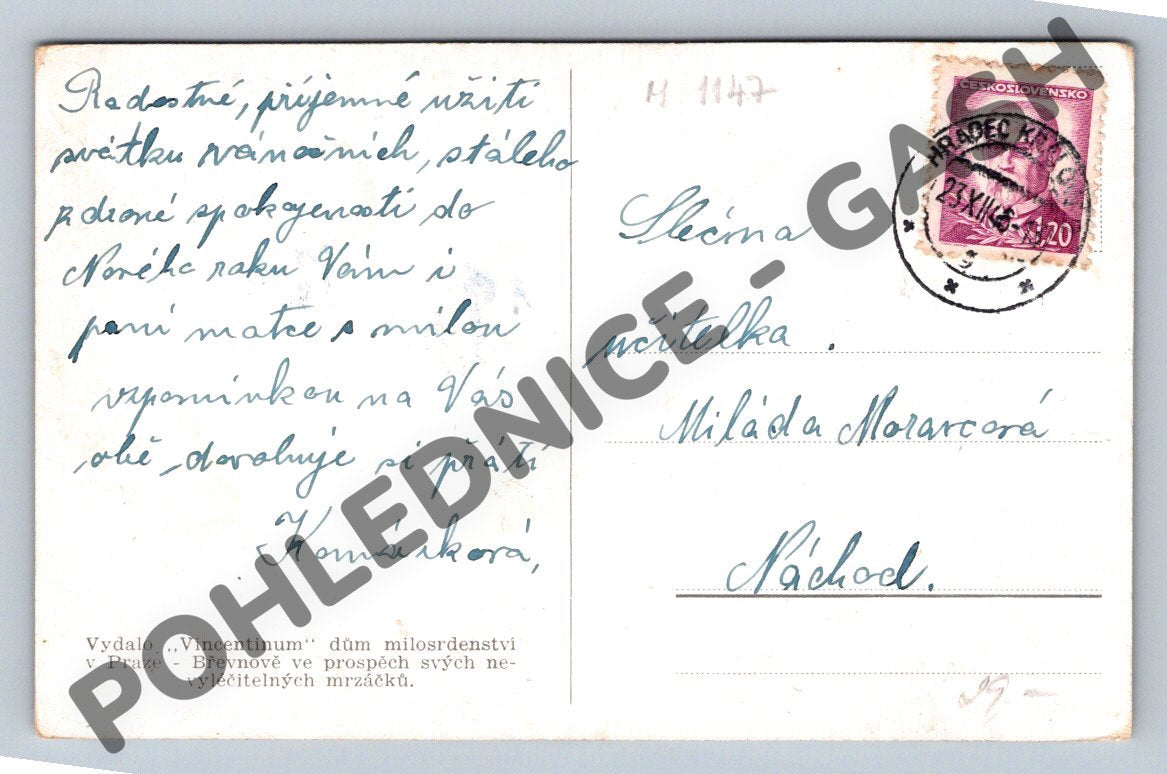 Radostné, příjemné užití
svátku vánočních, stálého
zdraví spokojenosti do
Nového roku Vám i
paní matce s milou
vzpomínkou na Vás
obě dovoluje si přáti
Komárková,
Vydalo „Vincentinum" dům milosrdenství
v Praze - Břevnově ve prospěch svých ne-
vyléčitelných mrzáčků.
M 1147
ČESKOSLOVENSKO
1,20
HRADEC KRÁLO
23.XII.46-13
Slečna
učitelka.
Miláda Moravcová
Náchod.
29,-
POHLEDNICE - GASH